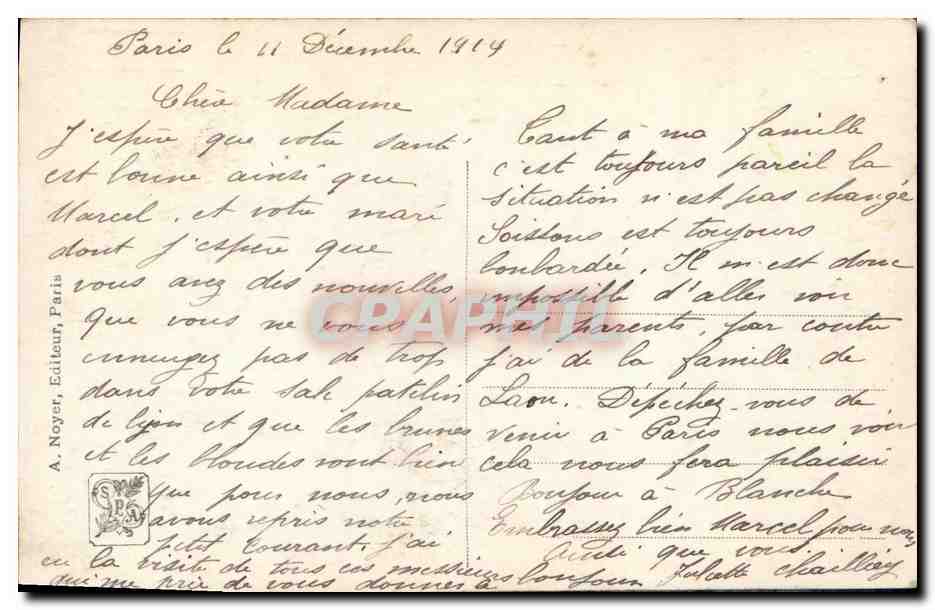 Paris le 11 Décembre 1914
Chère Madame
J'espère que votre santé
est bonne ainsi que
Marcel, et votre mari
dont j'espère que
vous avez des nouvelles,
que vous ne vous
ennuyez pas de trop
dans votre sale patelin
de Lyon et que les brunes
et les blondes vont bien
que pour nous, nous
avons repris notre
petit courant, j'ai
eu la visite de tous ces messieurs
qui me prie de vous donner le bonjour
Tant à ma famille
c'est toujours pareil la
situation n'est pas changé
Soissons est toujours
bonbardée, Il m'est donc
impossible d'aller voir
mes parents, par contre
j'ai de la famille de
Laon. Dépéchez-vous de
venir à Paris nous voir
cela nous fera plaisir
Bonjour à Blanche
Embrassez bien Marcel pour nous
Ainsi que vous.
Juliette Chailliey
A. Noyer, Editeur, Paris
S P A
CRAPHIL